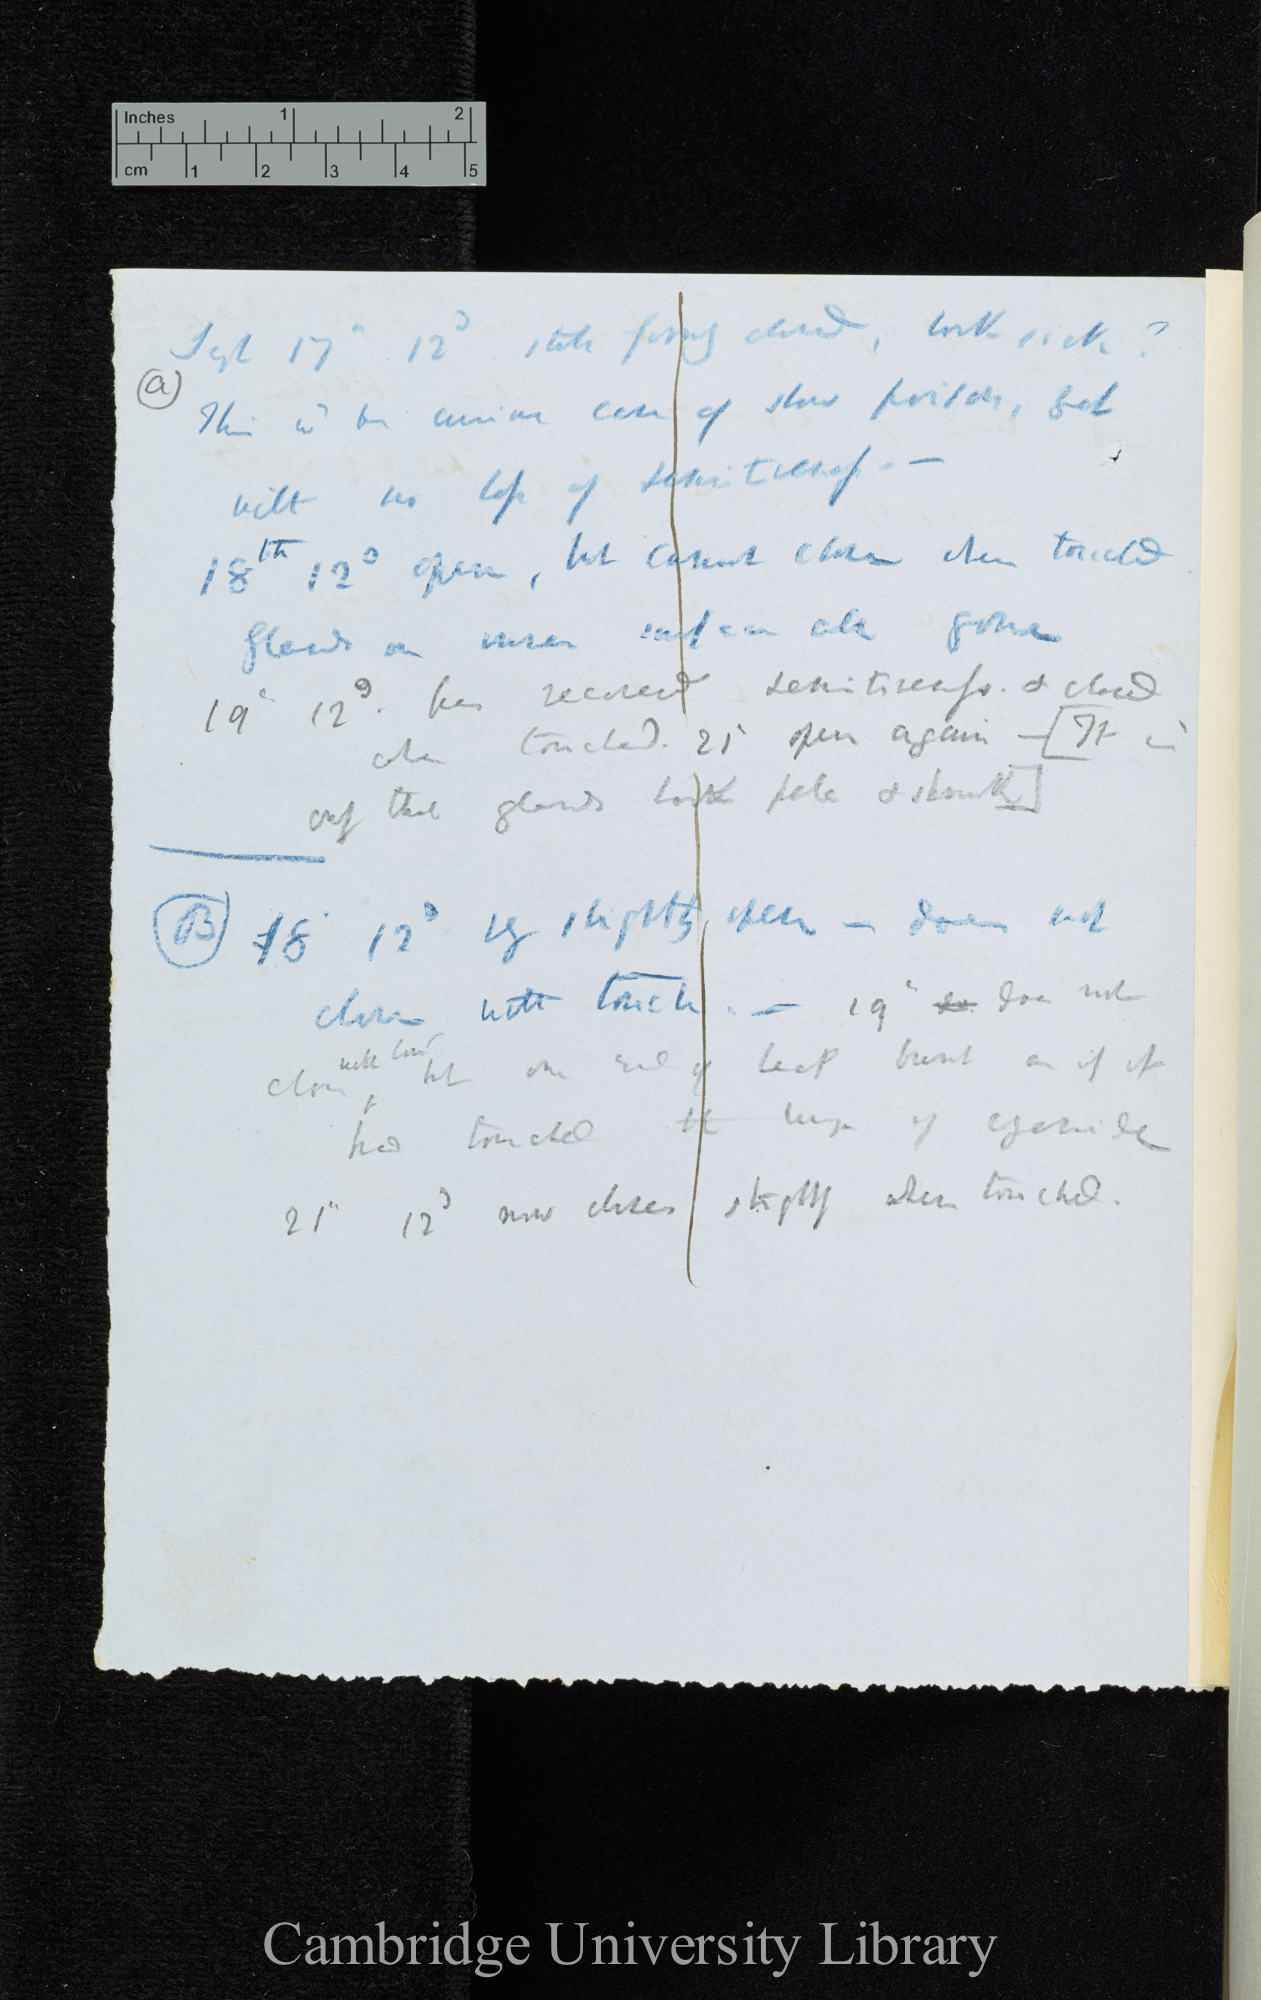 Inches 1 2
cm 1 2 3 4 5
Sept 17" 12° state closed, look sick?
(a)
This is curious case of slow poison, but
with no loss of sensitiveness. —
18th 12° open, but cannot close when touched
glands on surface all gone
19" 12°. has recovered sensitiveness. & closed
when touched. 21 open again — [It is
odd that glands look pale & smooth]
(B) 18 12° leaf slightly open — does not
close with touch. — 19" does not
close with touch but one end of leaf burnt as if it
had touched the of cyanide
21" 12° now closes slightly when touched.
Cambridge University Library